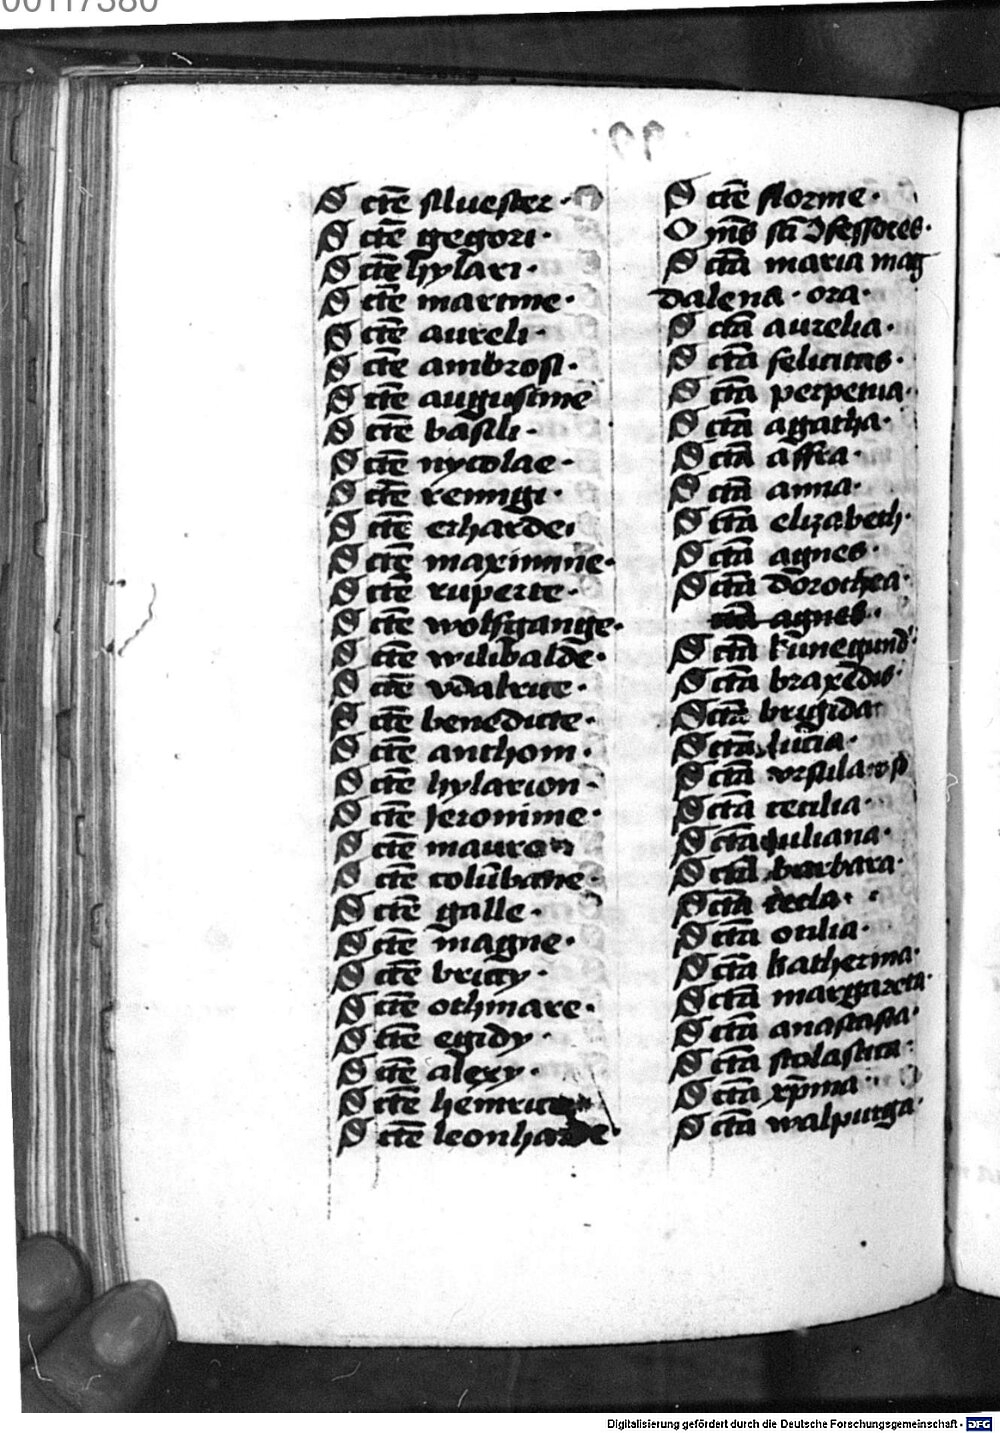 00117380
Scte siluester ·
Scte gegori ·
Scte hylari ·
Scte martine ·
Scte aureli ·
Scte ambrosi ·
Scte augustine
Scte basili ·
Scte nycolae ·
Scte remigi ·
Scte erharde ·
Scte maximine ·
Scte ruperte ·
Scte wolfgange ·
Scte wilibalde ·
Scte vdalrice ·
Scte benedicte ·
Scte anthoni ·
Scte hylarion ·
Scte Jeronime ·
Scte maure
Scte colūbane ·
Scte galle ·
Scte magne ·
Scte briccy ·
Scte othmare ·
Scte egidy ·
Scte alexy ·
Scte heinrice
Scte leonharde ·
Scte florine ·
Oms sci ꝯfessores ·
Scta maria mag
dalena · ora ·
Scta aurelia ·
Scta felicitas ·
Scta perpetua ·
Scta agatha ·
Scta affra ·
Scta anna ·
Scta elizabeth ·
Scta agnes ·
Scta dorothea ·
scta agnes ·
Scta kunegund
Scta braxedis ·
Scta brigida
Scta lucia ·
Scta vrsula
Scta cecilia ·
Scta iuliana ·
Scta barbara ·
Scta tecla ·
Scta otilia ·
Scta katherina ·
Scta margareta ·
Scta anastasia ·
Scta scolastica ·
Scta xp̄ina ·
Scta walpurga ·
Digitalisierung gefördert durch die Deutsche Forschungsgemeinschaft · DFG